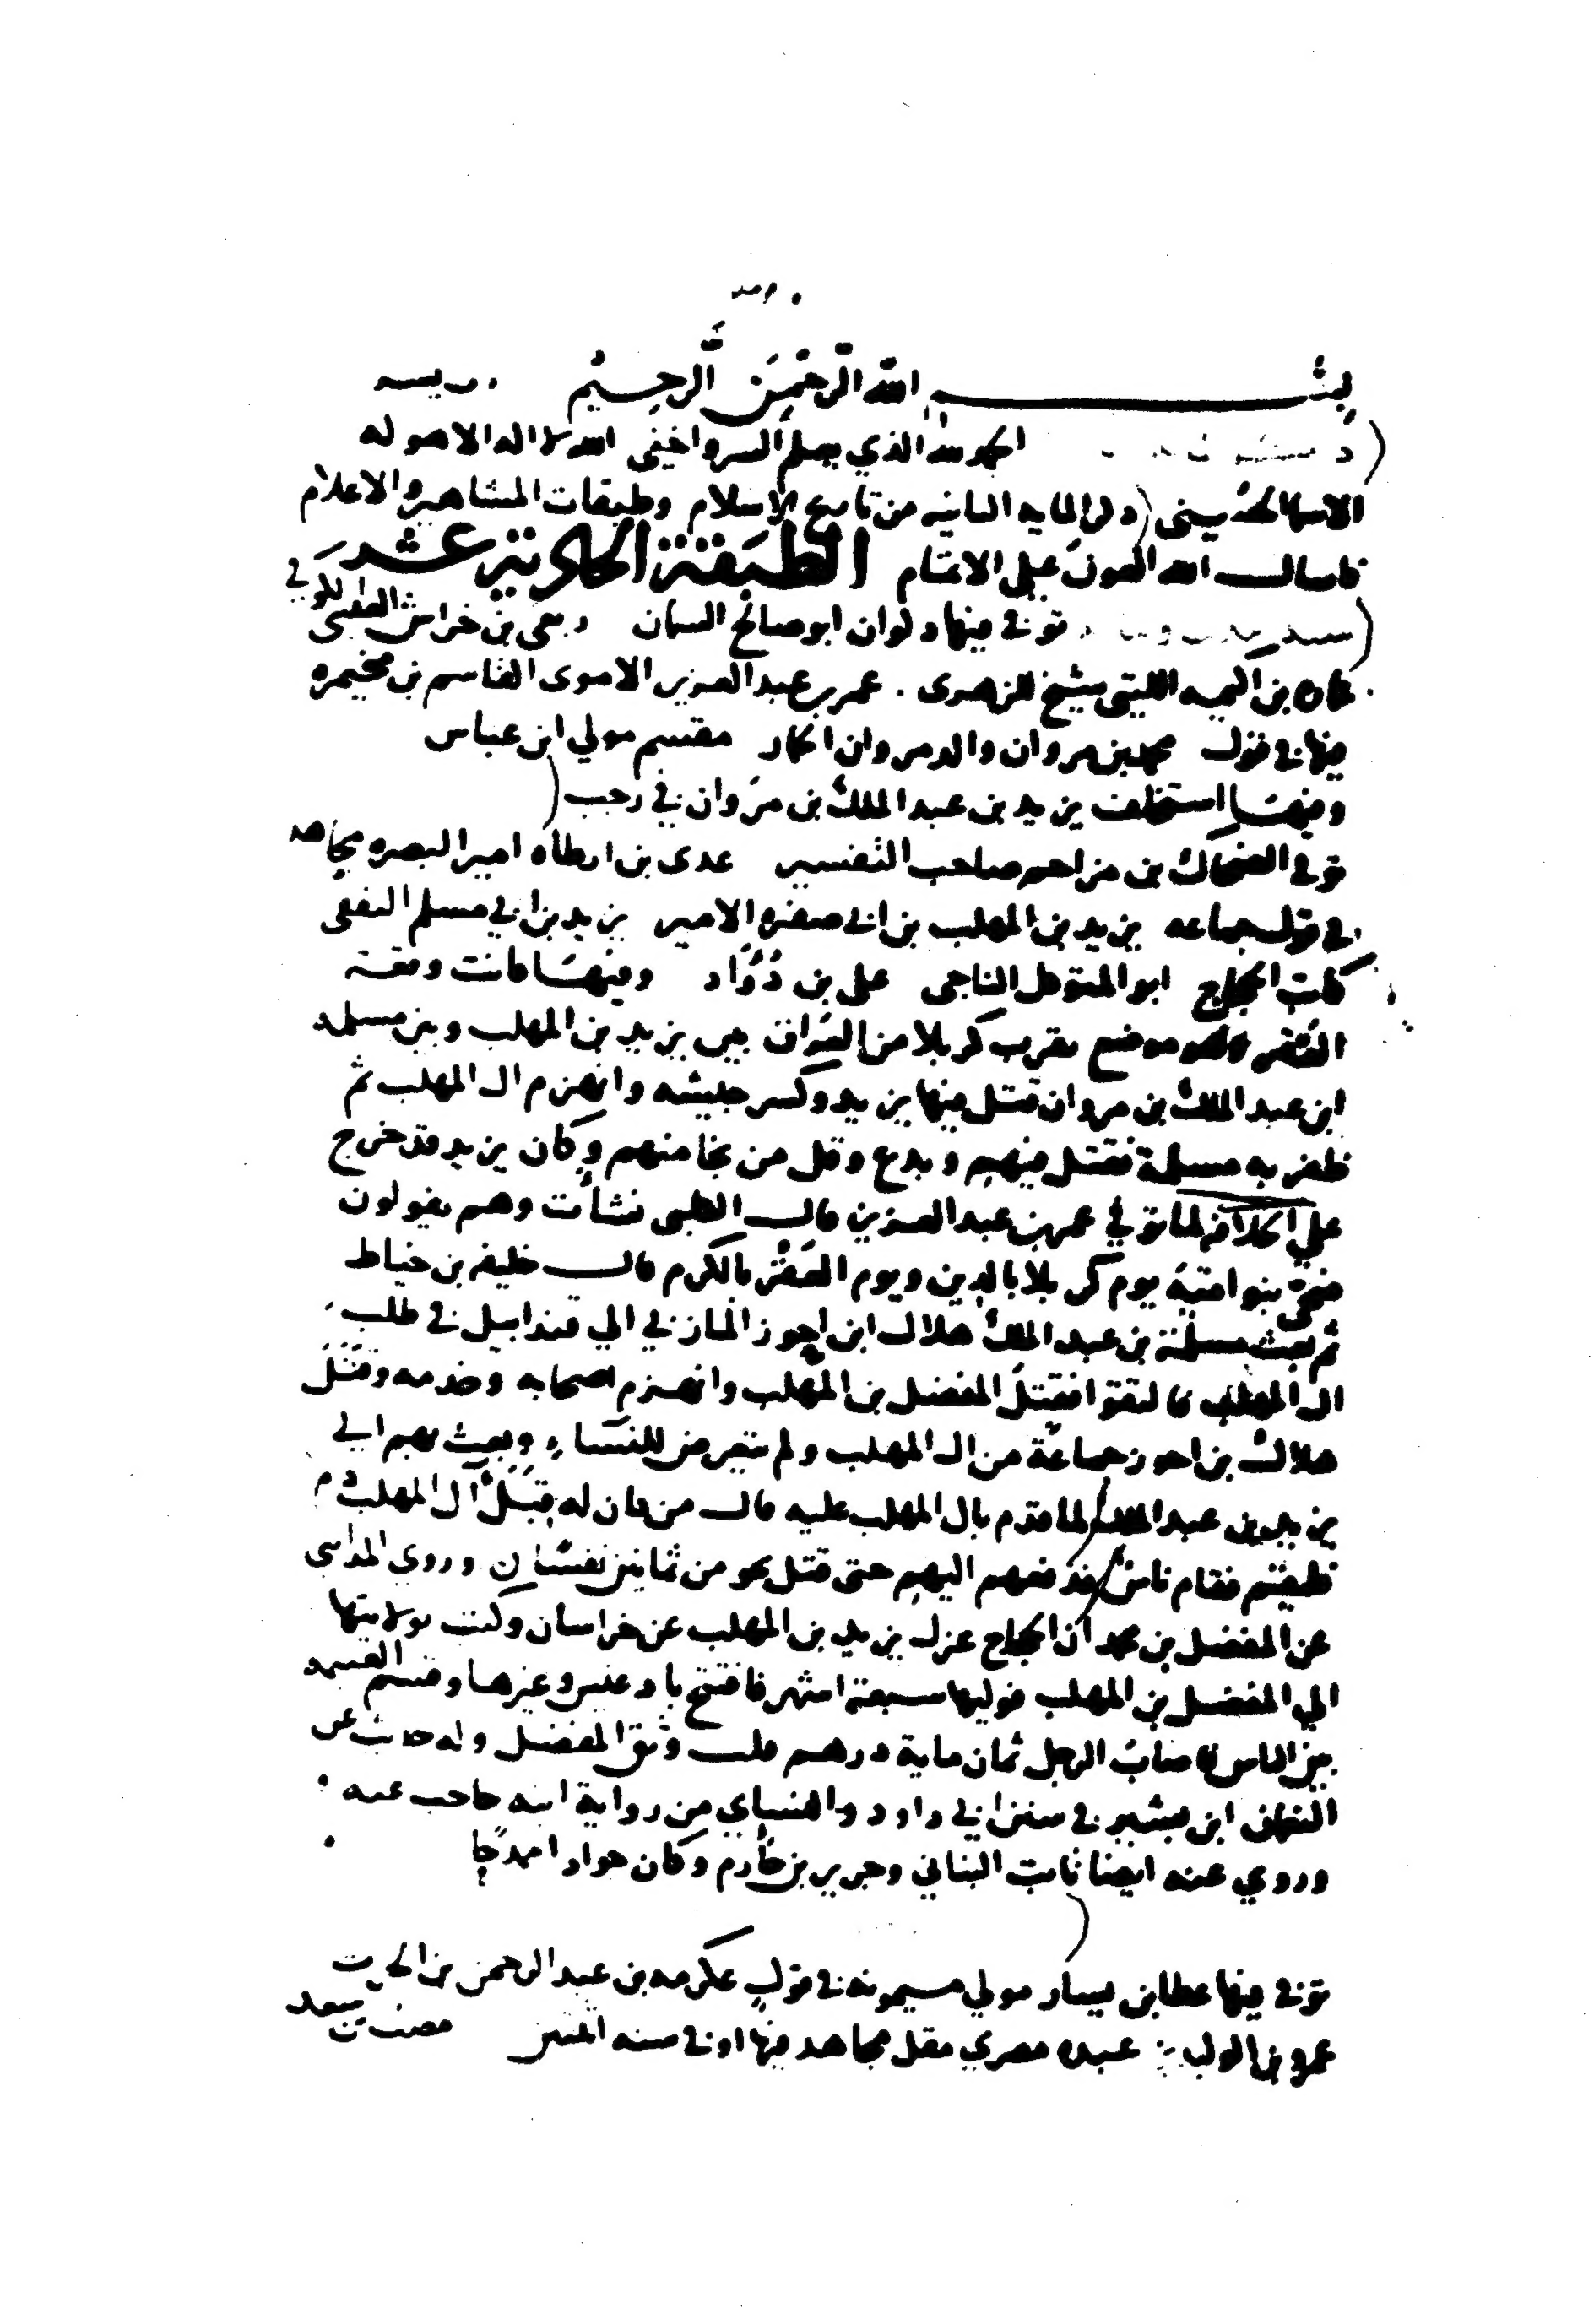 بسم الله الرحمن الرحيم
الحمد لله الذي يعلم السر واخفى الله لا اله الا هو له
الاسما الحسنى المايه الثانيه من تاريخ الاسلام وطبقات المشاهير والاعلام
فاسال الله العون على الاتمام الطبقة الحادية عشر
توفي فيها ذكوان ابو صالح السمان ربعي بن خراش الكوفي
عماره بن اكيمه الليثي شيخ للزهرى . عمر بن عبد العزيز الاموى القاسم بن مخيمره
فيها في قول محمد بن مروان والد مروان الحمار مقسم مولي ابن عباس
وفيها استخلف يزيد بن عبد الملك بن مروان في رجب
توفي الضحاك بن مزاحم صاحب التفسير عدى بن ارطاه امير البصره مجاهد
في قول جماعه يزيد بن المهلب بن ابي صفره الامير يزيد بن ابي مسلم الثقفي
كاتب الحجاج ابو المتوكل الناجي علي بن دُوَاد وفيها كانت وقعة
العَقر وهو موضع بقرب كربلا من العراق بين يزيد بن المهلب وبين مسلمه
ابن عبد الملك بن مروان قتل فيها يزيد وكسر جيشه وانهزم ال المهلب ثم
ظفر به مسلمة فقتل فيهم وبدع وقل من نجا منهم وكان يزيد قد خرج
علي الخلافة لما توفي عمر بن عبد العزيز قال الكلبي نشأت وهم يقولون
ضحى بنو امية يوم كربلا بالدين ويوم العَقْر بالكرم قال خليفه بن خياط
ثم بعث مسلمة بن عبد الملك هلال ابن احوز المازني الي قندابيل في طلب
ال المهلب فالتقوا فقتل المفضل بن المهلب وانهزم اصحابه وخدمه وقَتَلَ
هلال بن احوز جماعة من ال المهلب ولم يتعرض للنساء وبعث بهم الي
يزيد بن عبد الملك لما قدم بال المهلب عليه قال من كان له قِبَلَ آل المهلب دم
فليقم فقام ناس فدفعهم اليهم حتى قتل نحو من ثمانين نفسًا وروي المدايني
عن المفضل بن محمد ان الحجاج عزل يزيد بن المهلب عن خراسان وكتب بولايتها
الي المفضل بن المهلب فوليها سبعة اشهر فافتتح باذغيس وغيرها وقسم الغنيمه
بين الناس فاصاب الرجل ثمان ماية درهم قلت وثق المفضل وله حديث عن
النعمان ابن بشير في سنن ابي داود والنساي من رواية ابنه حاجب عنه
وروي عنه ايضا ثابت البناني وجرير بن حازم وكان جوادا ممدحًا
توفي فيها عطا بن يسار مولي ميمونه في قول عكرمه بن عبد الرحمن بن الحرث
عمرو بن الوليد بن عبده مصري مقل مجاهد فيها او في سنه اثنتين مصعب بن سعد